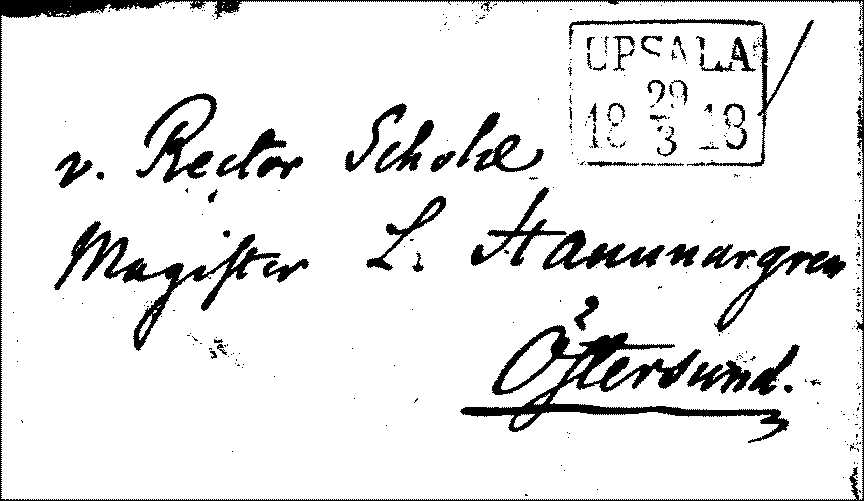 UPSALA
29
18 3 18
v. Rector Schol.
Magister L. Hammargren
Östersund.